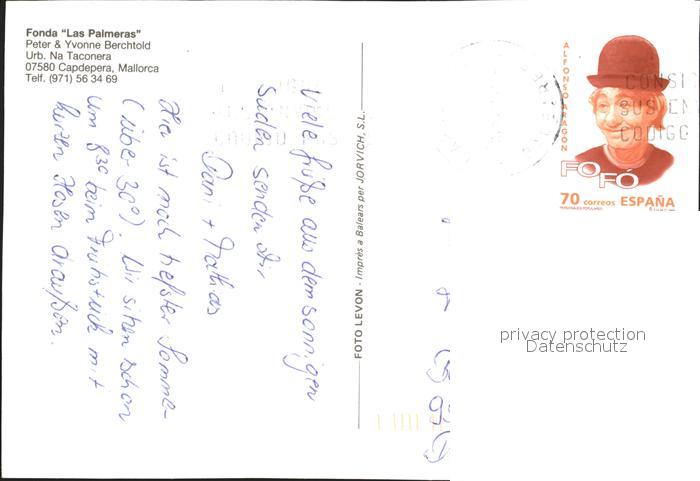 Fonda "Las Palmeras"
Peter & Yvonne Berchtold
Urb. Na Taconera
07580 Capdepera, Mallorca
Telf. (971) 56 34 69
Viele Grüße aus dem sonnigen
Süden senden Dir
Dani + Mathias
Hier ist noch tiefster Somme-
(über 30°). Wir sitzen schon
um 830 beim Frühstück mit
kurzen Hosen draußen.
FOTO LEVON - Imprès a Balears per JORVICH, S.L.
ALFONSO ARAGON
FOFÓ
70 correos ESPAÑA
CONSI
SUS EN
CODIGO
privacy protection
Datenschutz